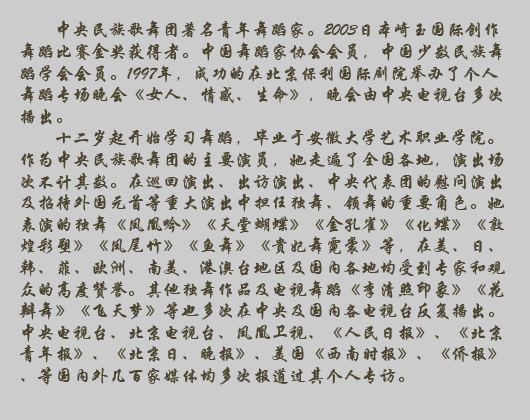 中央民族歌舞团著名青年舞蹈家。2003日本崎玉国际创作
舞蹈比赛金奖获得者。中国舞蹈家协会会员，中国少数民族舞
蹈学会会员。1997年，成功的在北京保利国际剧院举办了个人
舞蹈专场晚会《女人、情感、生命》，晚会由中央电视台多次
播出。
十二岁起开始学习舞蹈，毕业于安徽大学艺术职业学院。
作为中央民族歌舞团的主要演员，她走遍了全国各地，演出场
次不计其数。在巡回演出、出访演出、中央代表团的慰问演出
及招待外国元首等重大演出中担任独舞、领舞的重要角色。她
表演的独舞《凤凰吟》《天堂蝴蝶》《金孔雀》《化蝶》《敦
煌彩塑》《凤尾竹》《鱼舞》《贵妃舞霓裳》等，在美、日、
韩、菲、欧洲、南美、港澳台地区及国内各地均受到专家和观
众的高度赞誉。其他独舞作品及电视舞蹈《李清照印象》《花
辫舞》《飞天梦》等也多次在中央及国内各电视台反复播出。
中央电视台、北京电视台、凤凰卫视、《人民日报》、《北京
青年报》、《北京日、晚报》、美国《西南时报》、《侨报》
、等国内外几百家媒体均多次报道过其个人专访。